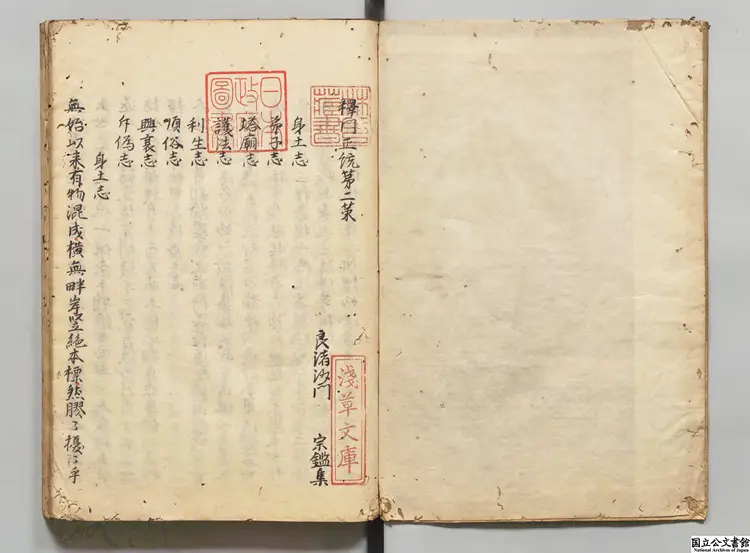 釋門正統第二䇿
良渚沙門 宗鑑集
身土志
弟子志
塔廟志
護法志
利生志
順俗志
興衰志
斥偽志
身土志
無始以来有物混成横無畔岸竪絶本標然膠〻擾〻乎
淺草文庫
日本政圖
国立公文書館
National Archives of Japan